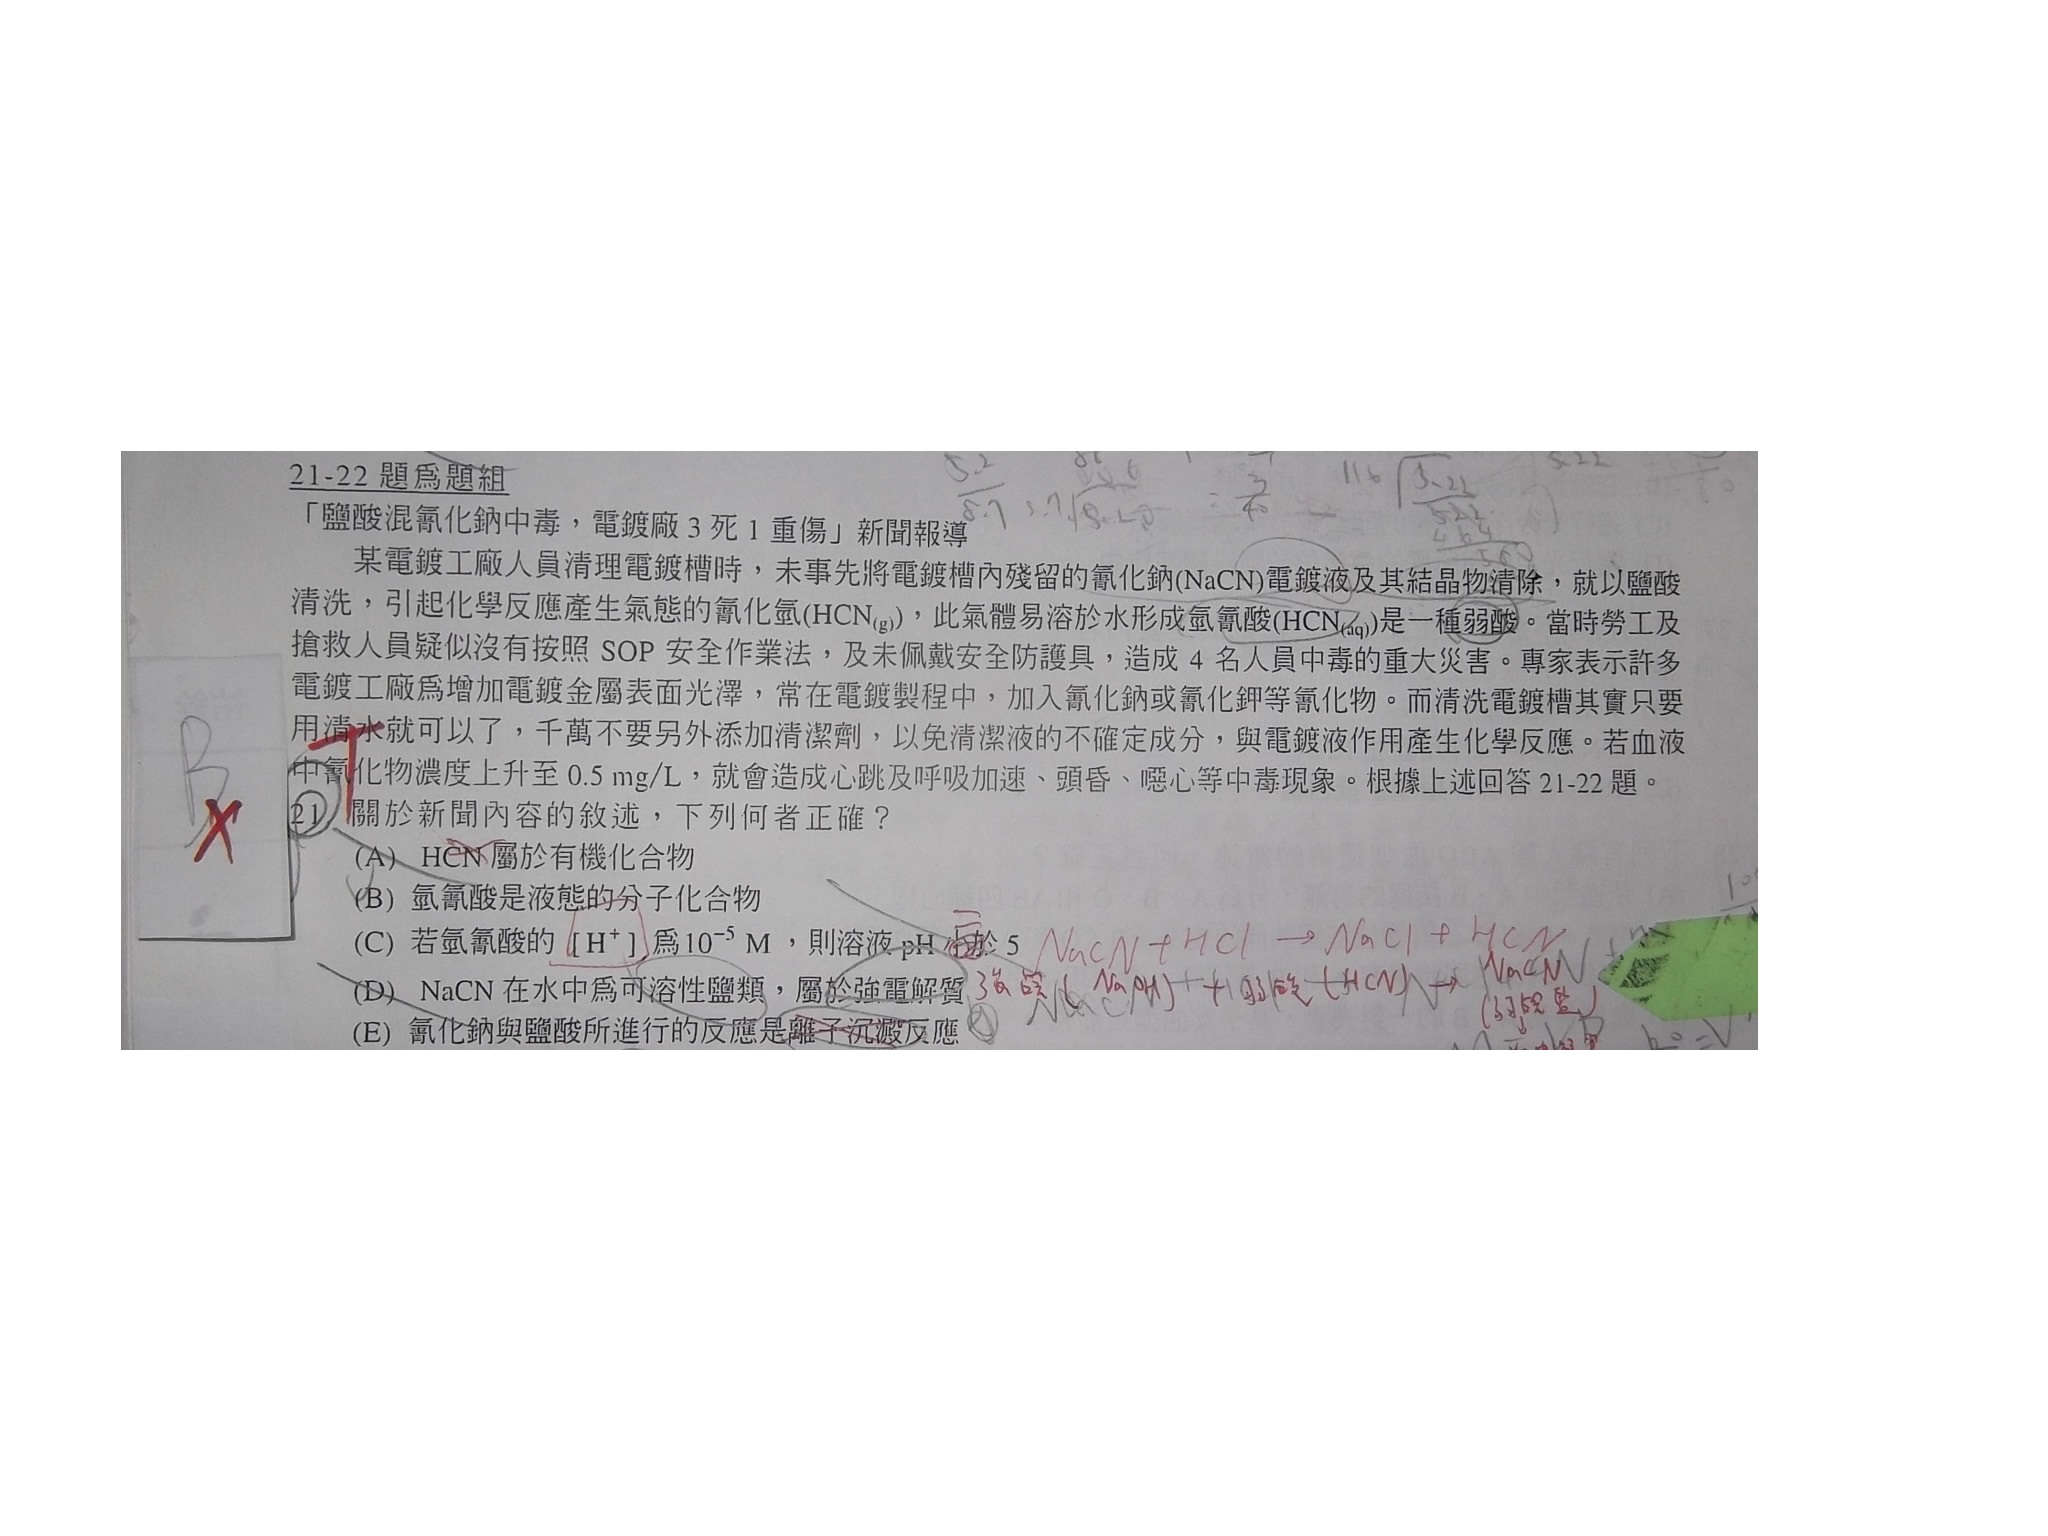 21-22 題為題組
「鹽酸混氰化鈉中毒，電鍍廠 3 死 1 重傷」新聞報導
某電鍍工廠人員清理電鍍槽時，未事先將電鍍槽內殘留的氰化鈉(NaCN)電鍍液及其結晶物清除，就以鹽酸
清洗，引起化學反應產生氣態的氰化氫(HCN(g))，此氣體易溶於水形成氫氰酸(HCN(aq))是一種弱酸。當時勞工及
搶救人員疑似沒有按照 SOP 安全作業法，及未佩戴安全防護具，造成 4 名人員中毒的重大災害。專家表示許多
電鍍工廠為增加電鍍金屬表面光澤，常在電鍍製程中，加入氰化鈉或氰化鉀等氰化物。而清洗電鍍槽其實只要
用清水就可以了，千萬不要另外添加清潔劑，以免清潔液的不確定成分，與電鍍液作用產生化學反應。若血液
中氰化物濃度上升至 0.5 mg/L，就會造成心跳及呼吸加速、頭昏、噁心等中毒現象。根據上述回答 21-22 題。
B
21 關於新聞內容的敘述，下列何者正確？
(A) HCN 屬於有機化合物
(B) 氫氰酸是液態的分子化合物
(C) 若氫氰酸的 [H⁺] 為 10⁻⁵ M，則溶液 pH 於 5
NaCN + HCl → NaCl + HCN
(D) NaCN 在水中為可溶性鹽類，屬於強電解質
(NaOH) + 弱酸 (HCN) → NaCN
(E) 氰化鈉與鹽酸所進行的反應是離子沉澱反應